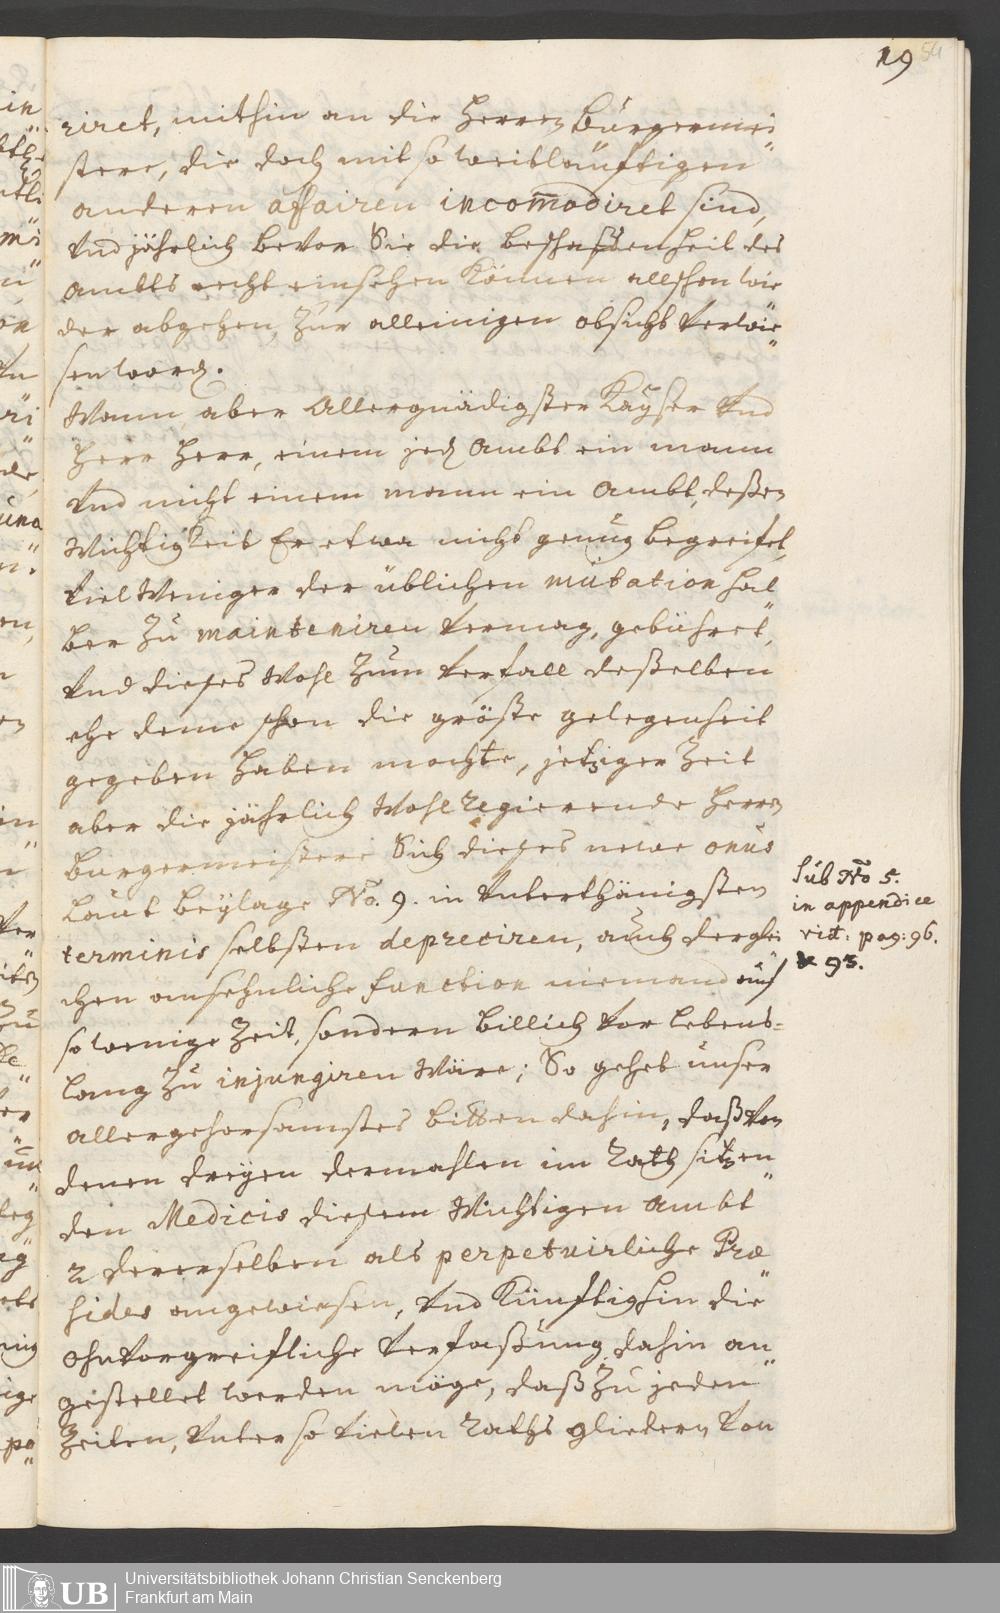 19 54
riret, mithin an die Herren Bürgermei
stere, die doch mit so weitläufftigen
anderen affairen incom̅odiret sind,
Und jährlich bevor Sie die beschaffenheit des
Ambts recht einsehen Können allschon wie
der abgehen, Zur alleinigen obsicht verwie
sen word.
Wann aber Allergnädigster Kaÿser Und
Herr Herr, einem jed Ambt ein mann
Und nicht einem mann ein Ambt, deßen
Wichtigkeit Er etwa nicht genug begreifet,
viel Weniger der üblichen mutation hal
ber Zu mainteniren vermag, gebühret,
Und dieses Wohl Zum verfall deßelben
ehe deme schon die größte gelegenheit
gegeben haben mochte, jetziger Zeit
aber die jährlich Wohl Regierende Herren
Burgermeistere Sich dieses neue onus
Laut Beÿlage No. 9. in Unterthänigsten
terminis selbsten depreciren, auch derglei
chen ansehnliche function niemand auf
so wenige Zeit, sondern billich vor lebens=
lang Zu injungiren Wäre; So gehet unser
allergehorsamstes bitten dahin, daß von
denen dreÿen dermahlen im Rath sitzen
den Medicis diesem Wichtigen Ambt
2 dererselben als perpetuirliche Præ
sides angewiesen, Und Künfftighin die
ohnvorgreifliche verfaßung dahin an
gestellet werden möge, daß Zu jeden
Zeiten, Unter so vielen Raths gliedern von
sub No 5.
in appendice
vid: pag: 96.
& 93.
UB Universitätsbibliothek Johann Christian Senckenberg
Frankfurt am Main